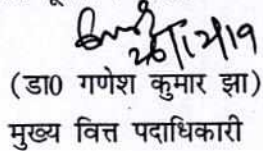 26/12/19
(डा0 गणेश कुमार झा)
मुख्य वित्त पदाधिकारी